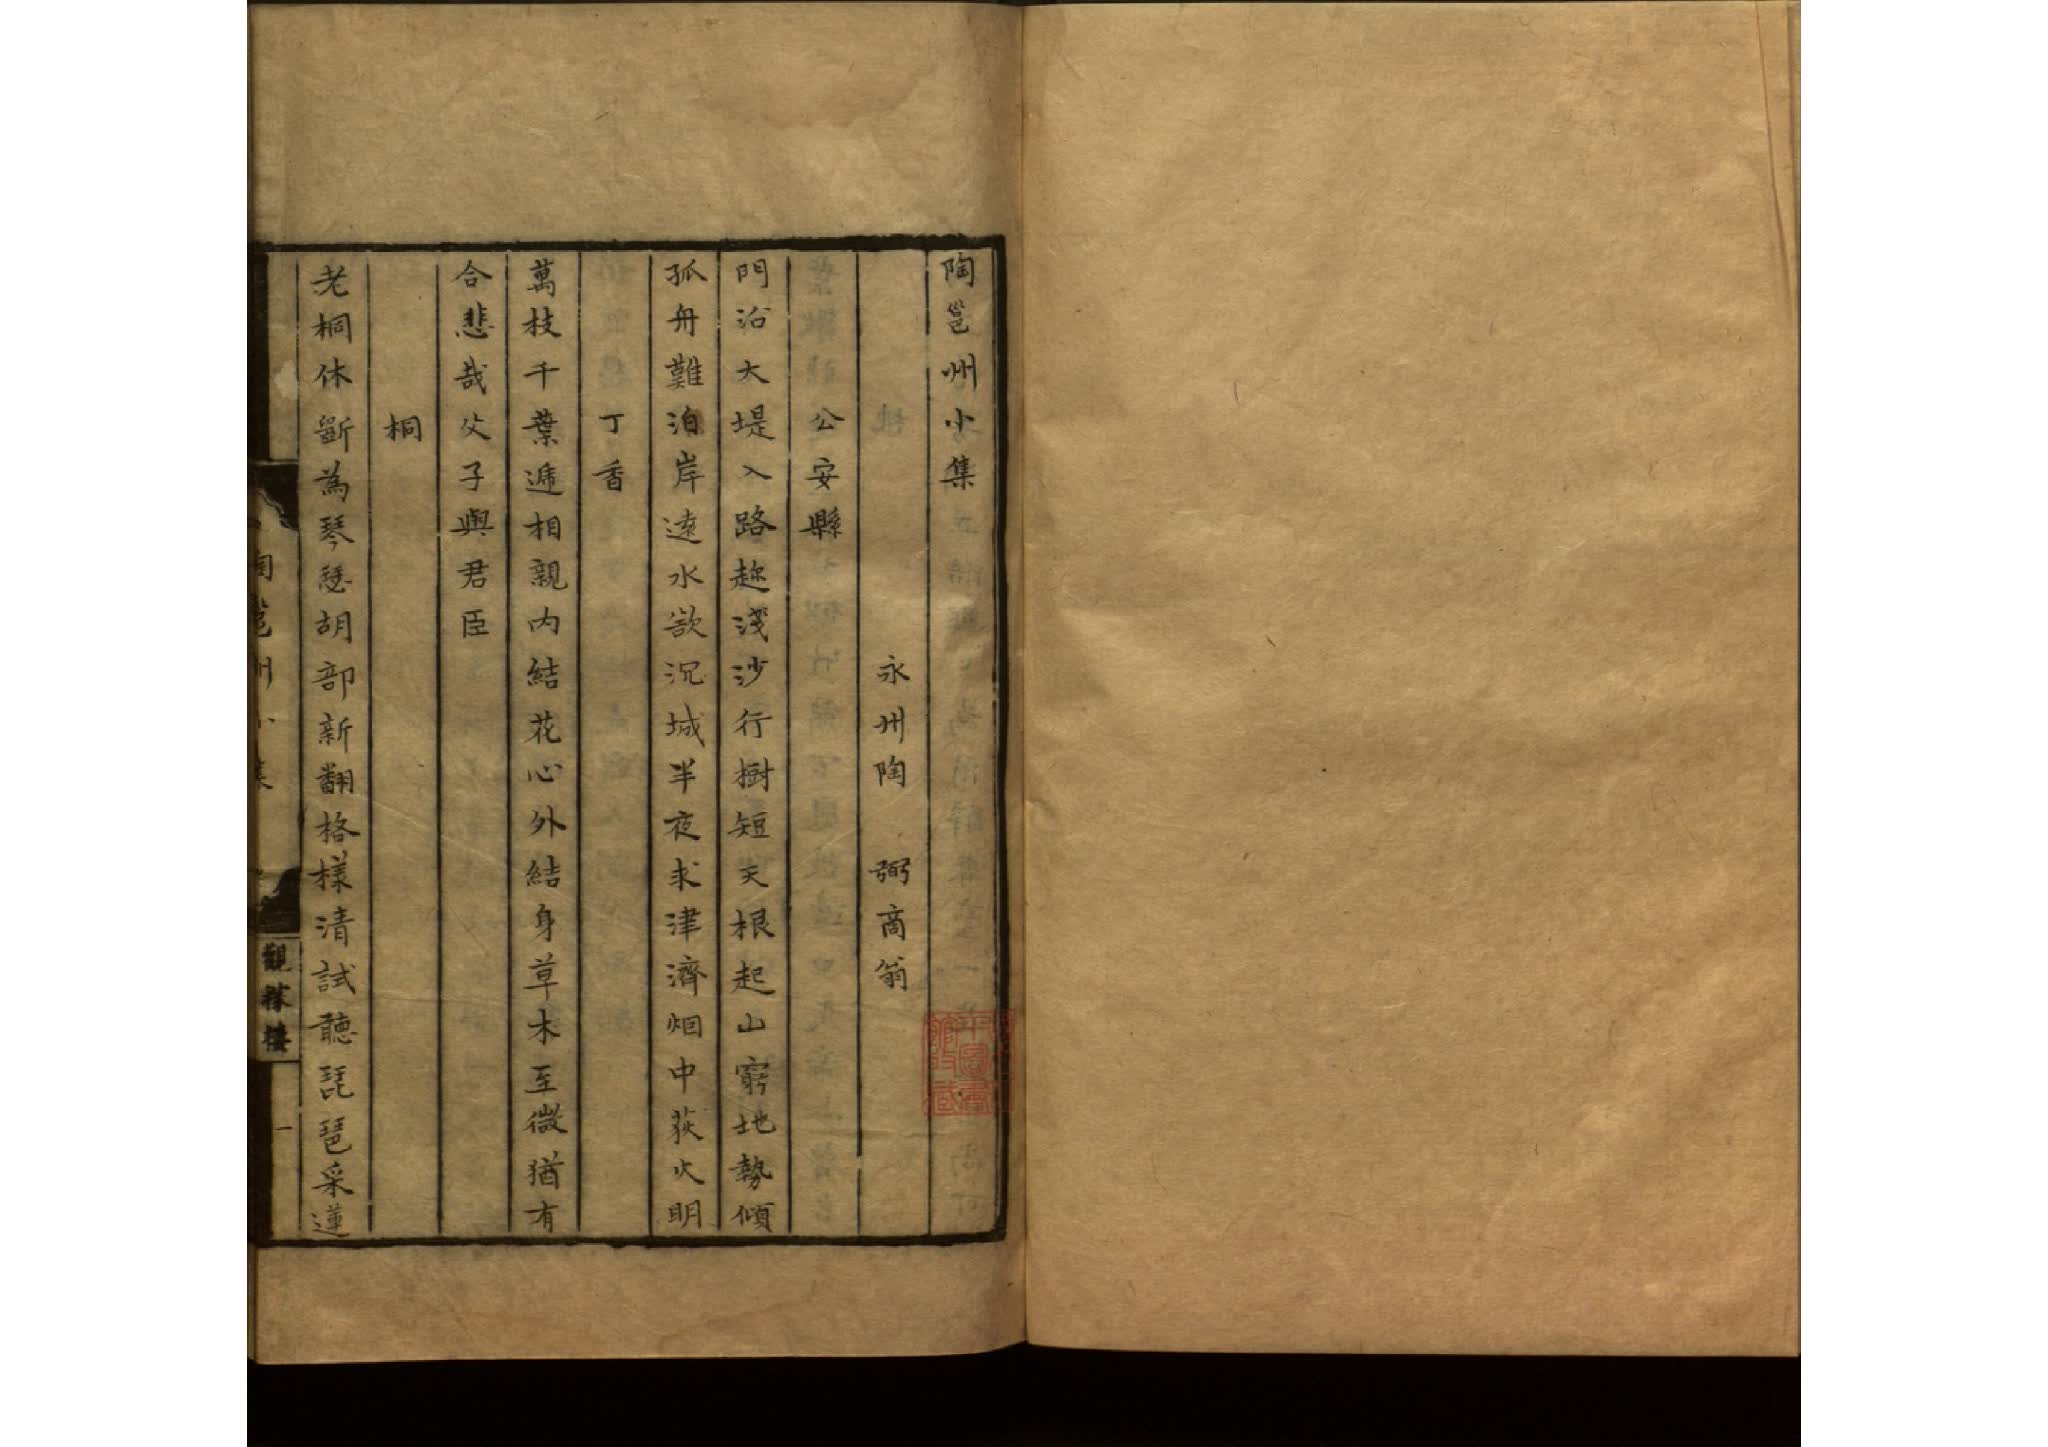 陶邕州小集
永州陶　弼商翁
公安縣
門沿大堤入路趂淺沙行樹短天根起山窮地勢傾
孤舟難泊岸遠水欲沉城半夜求津濟烟中荻火明
丁香
萬枝千葉遞相親内結花心外結身草木至微猶有
合悲哉父子與君臣
桐
老桐休斵為琴瑟胡部新翻格様清試聽琵琶采蓮
陶邕州小集
一
觀稼樓